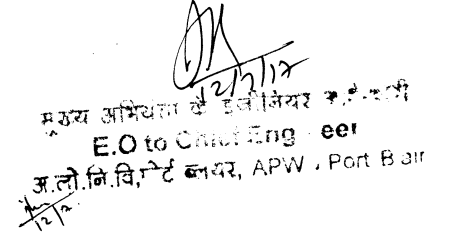 12/7/17
मुख्य अभियंता के इंजीनियर
E.O to Chief Eng eer
अ.लो.नि.वि, र्ट ब्लयर, APW , Port B air
12/7